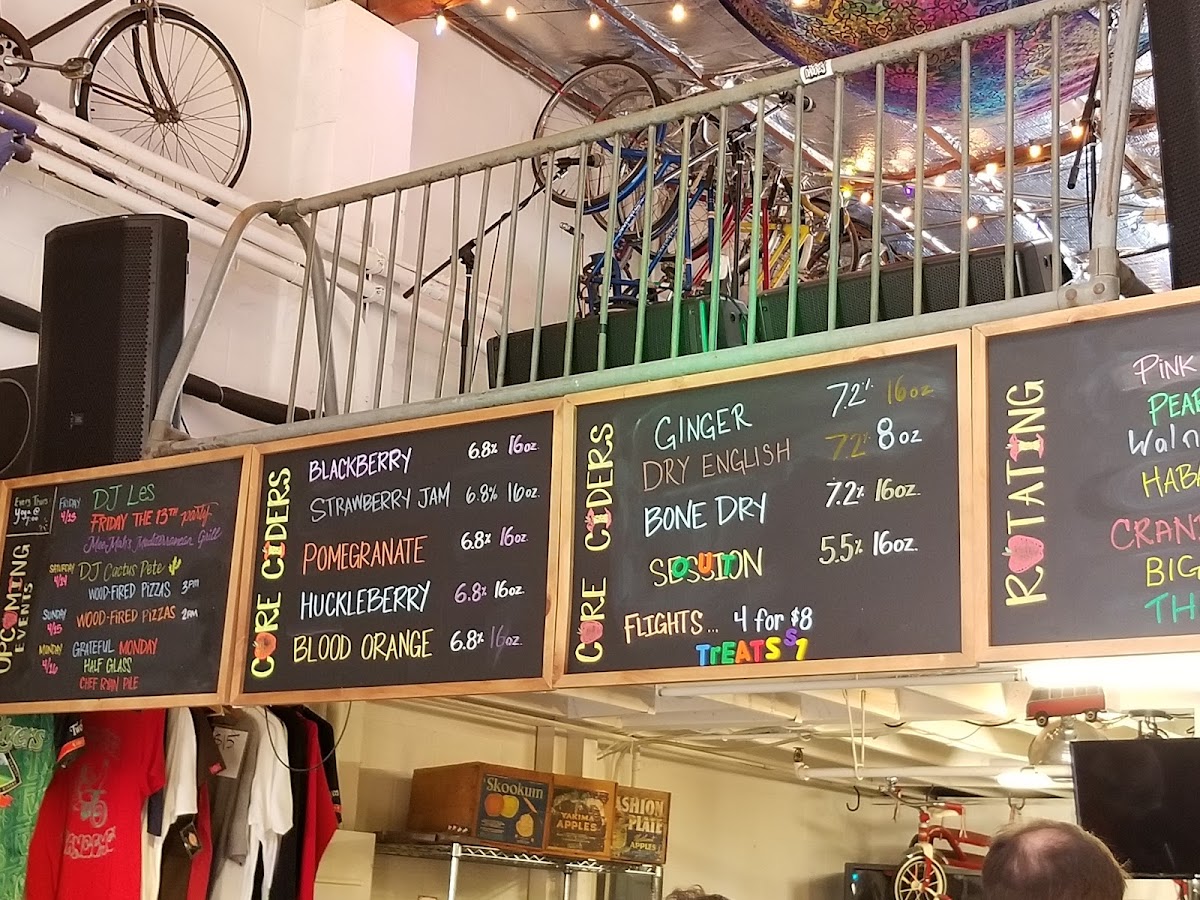 Every Thurs
Yoga @
7:00
UPCOMING
EVENTS
FRIDAY
DJ LES
FRIDAY THE 13th party
Mediterranean Grill
SATURDAY
DJ Cactus Pete
WOOD-FIRED PIZZAS 3PM
SUNDAY
4/15
WOOD-FIRED PIZZAS 2PM
MONDAY
4/16
GRATEFUL MONDAY
HALF GLASS
CHEF RYAN PILE
CORE CIDERS
BLACKBERRY 6.8% 16oz
STRAWBERRY JAM 6.8% 16oz.
POMEGRANATE 6.8% 16oz.
HUCKLEBERRY 6.8% 16oz.
BLOOD ORANGE 6.8% 16oz.
CORE CIDERS
GINGER 7.2% 16oz
DRY ENGLISH 7.2% 8oz
BONE DRY 7.2% 16oz.
SESSION 5.5% 16oz.
OUT
FLIGHTS... 4 for $8
TREATS $1
ROTATING
PINK
PEAR
Waln
HABA
CRAN
BIG
TH
$15
Skookum
YAKIMA
APPLES
FASHION
PLATE
APPLES